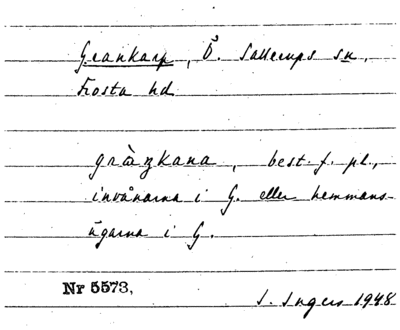 Grankarp, Ö. Sallerups sn,
Frosta hd
gràŋkana, best. f. pl.,
invånarna i G. eller hemmans-
ägarna i G.
Nr 5573,
I. Ingers 1948